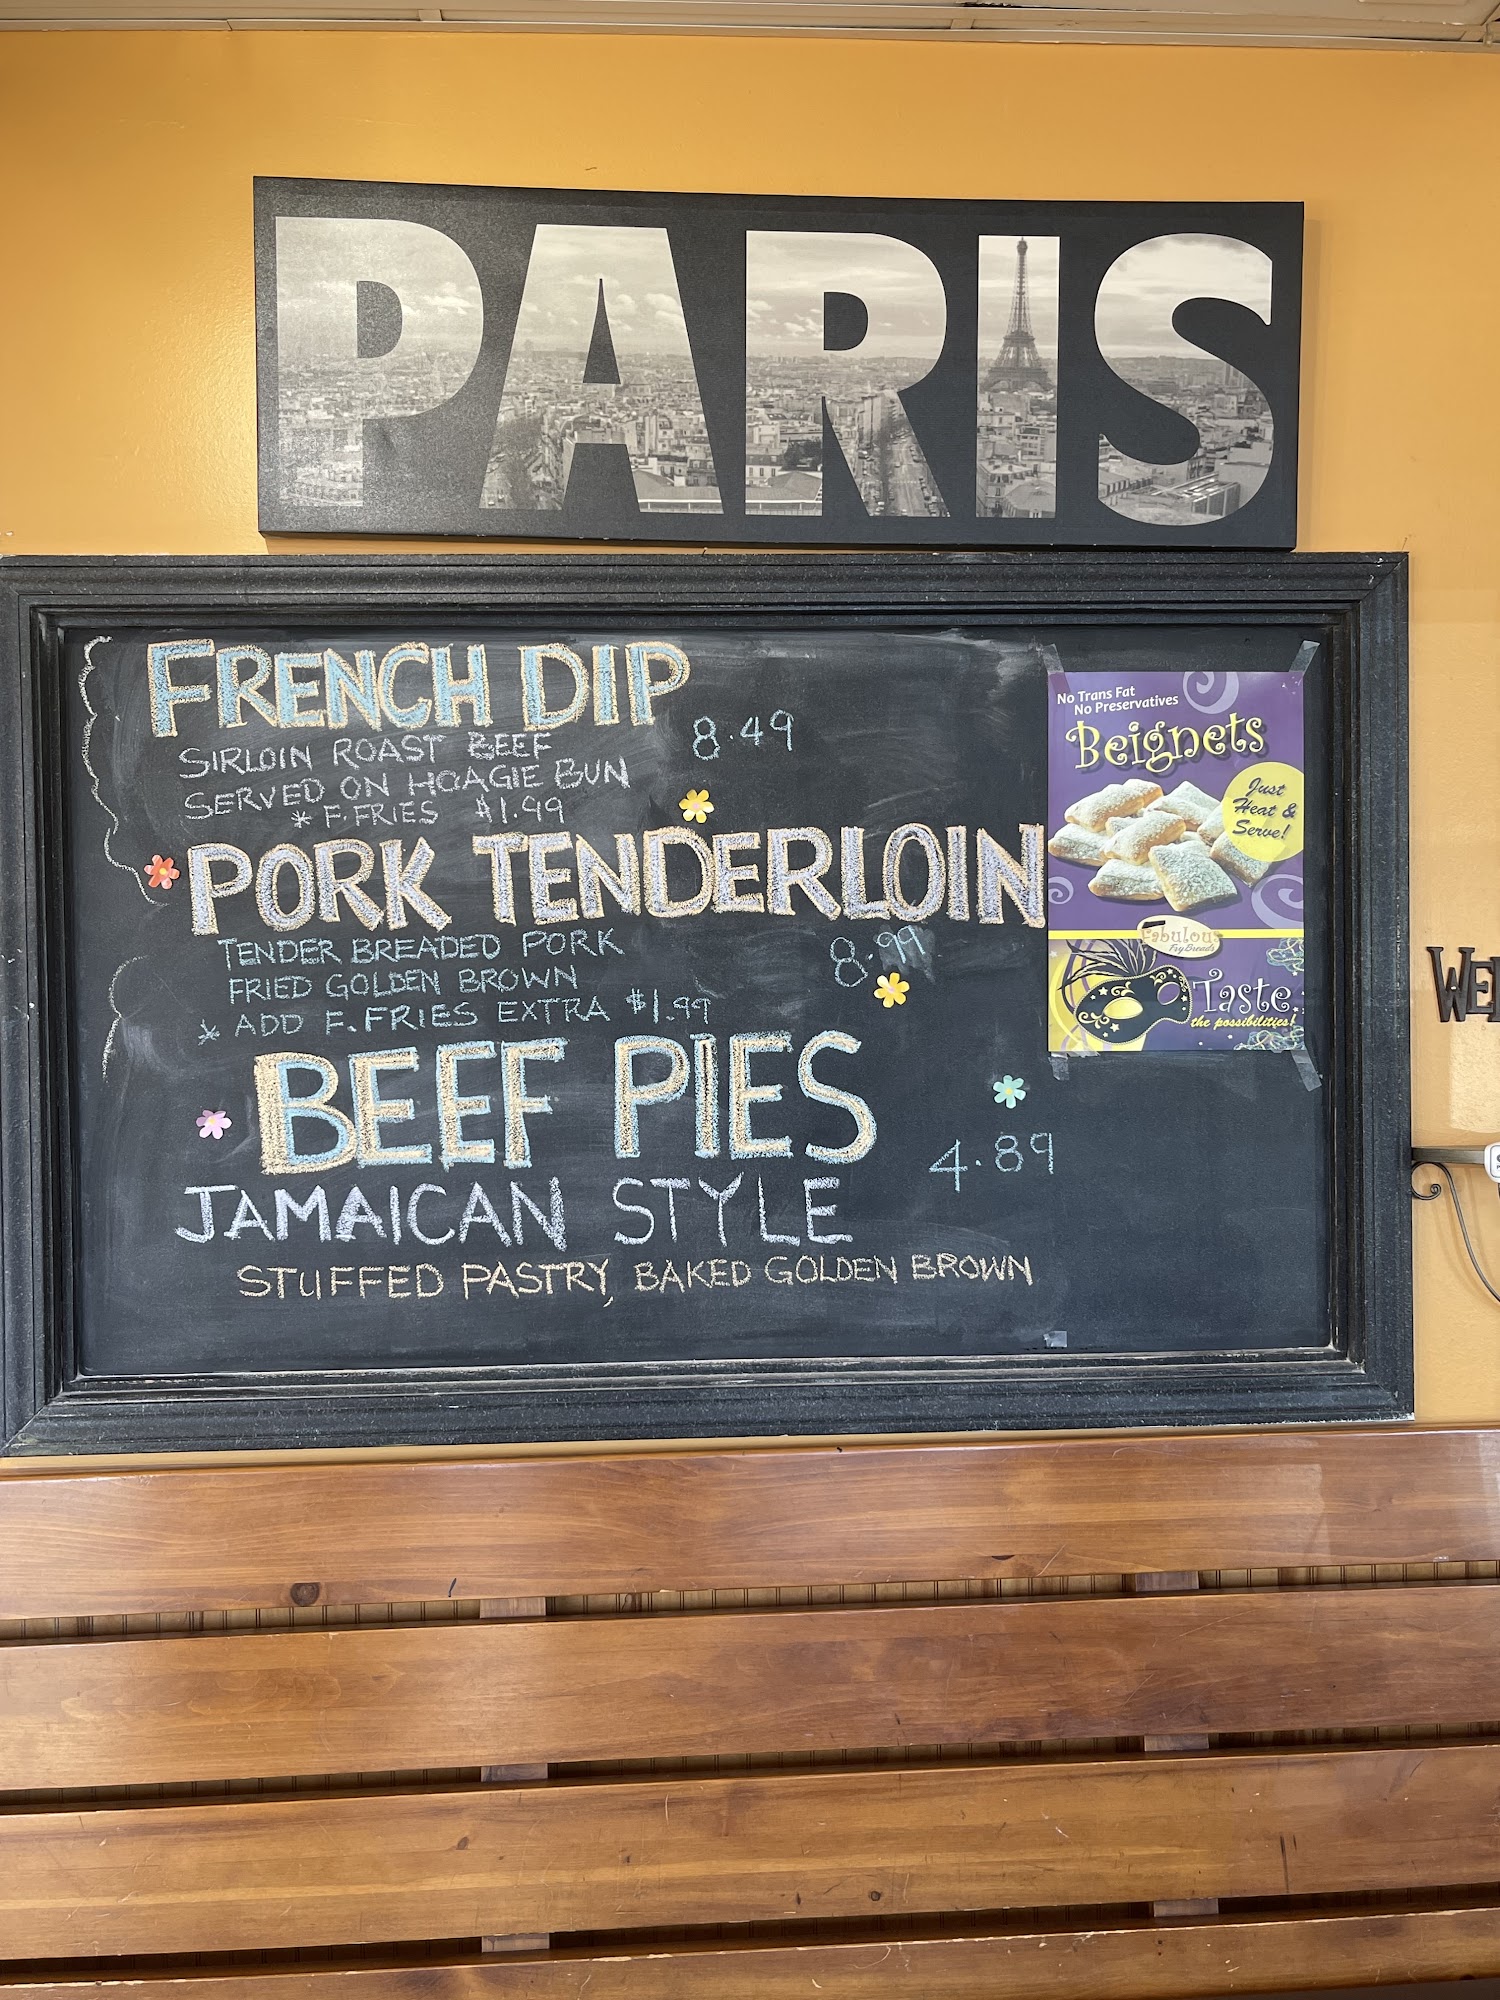 PARIS
FRENCH DIP
SIRLOIN ROAST BEEF
8.49
SERVED ON HOAGIE BUN
* F.FRIES $1.99
PORK TENDERLOIN
TENDER BREADED PORK
8.99
FRIED GOLDEN BROWN
* ADD F.FRIES EXTRA $1.99
BEEF PIES
4.89
JAMAICAN STYLE
STUFFED PASTRY, BAKED GOLDEN BROWN
No Trans Fat
No Preservatives
Beignets
Just
Heat &
Serve!
Fabulous
FryBreads
Taste
the possibilities!